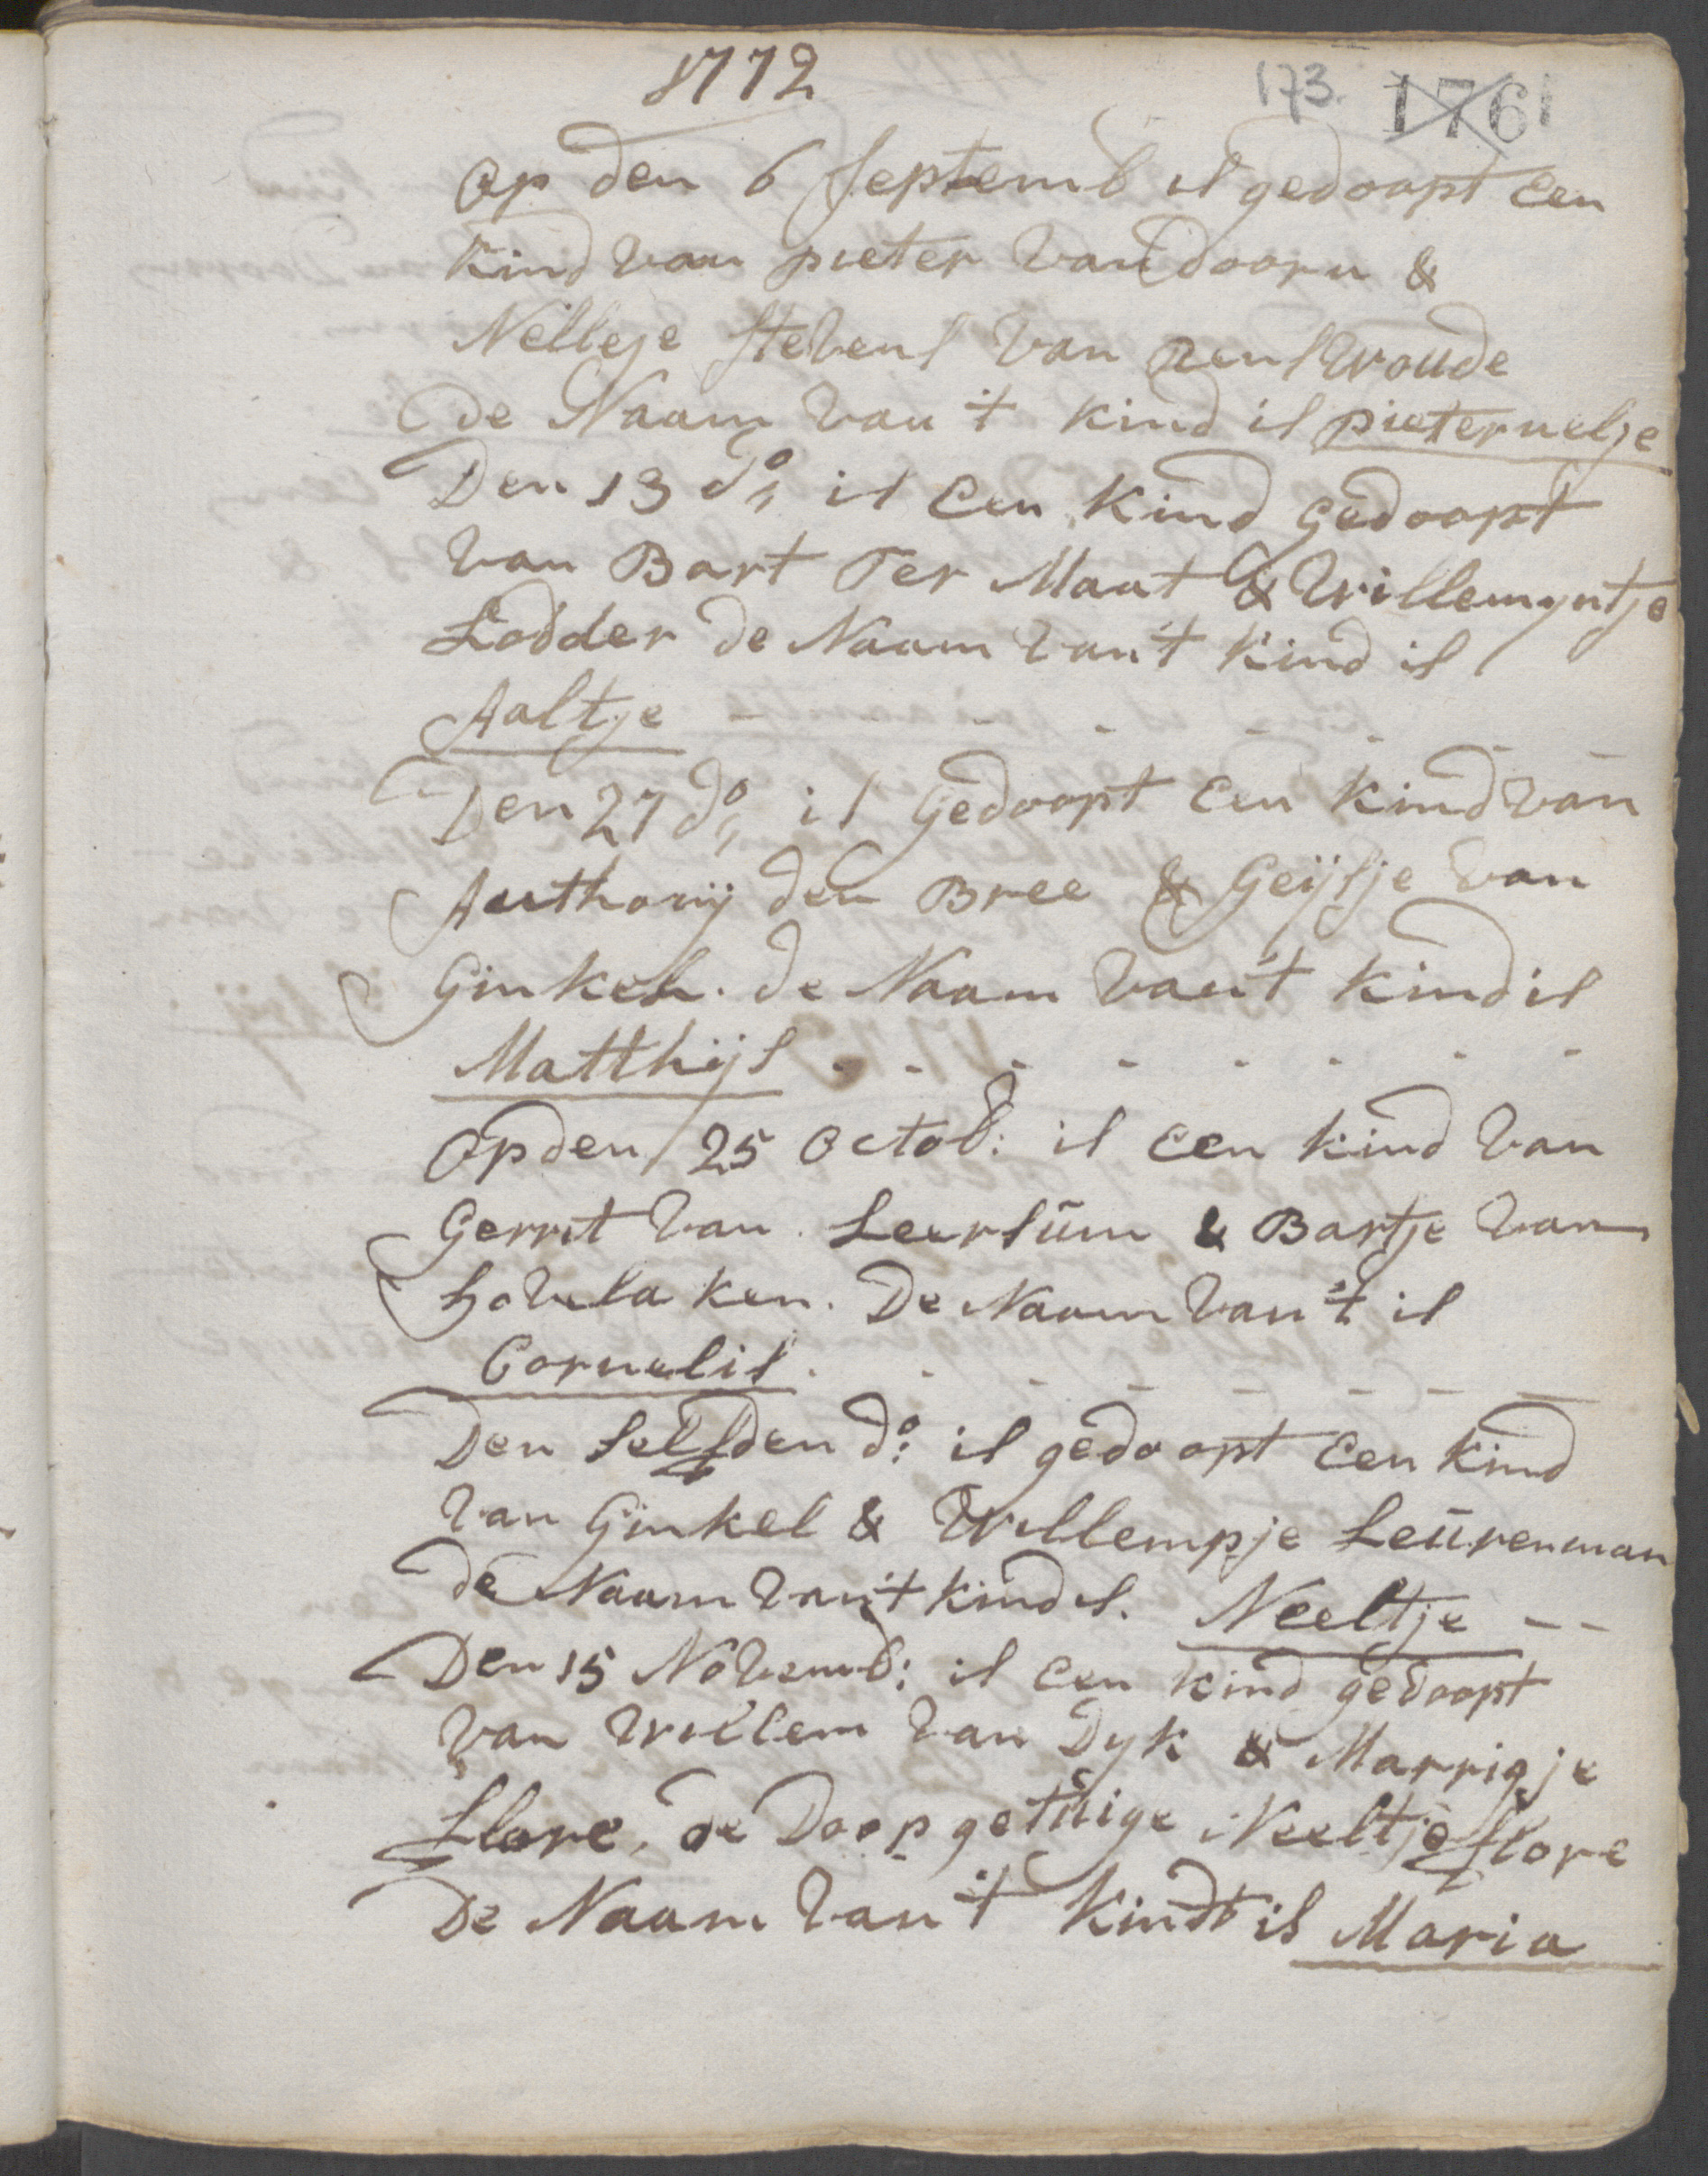 1772
173. 1761
Op den 6 Septemb is gedoopt Een
Kind van pieter van doorn &
Nelleje Stevens van Renswoude
De Naam van t kind is pieternelje
Den 13 do, is Een Kind gedoopt
van Bart Ter Maat & Willemyntje
Lodder de Naam van't kind is
Aaltje - - - - - - -
Den 27 do, is Gedoopt Een kind van
Anthonij den Bree & Geijsje van
Ginkel. de Naam van't kind is
Matthijs - - - - - - -
Op den 25 Octob: is Een kind van
Gerrit van Leersum & Bartje van
Hovelaken. De Naam van't is
Cornelis. - - - - - - -
Den Selfden do: is gedoopt Een kind
van Ginkel & Willempje Leürenman
de Naam van't kind is. Neeltje - -
Den 15 Novemb: is Een kind gedoopt
van Willem van Dyk & Marrigje
Flore, de Doop getuige Neeltje flore
De Naam van't Kindt is Maria